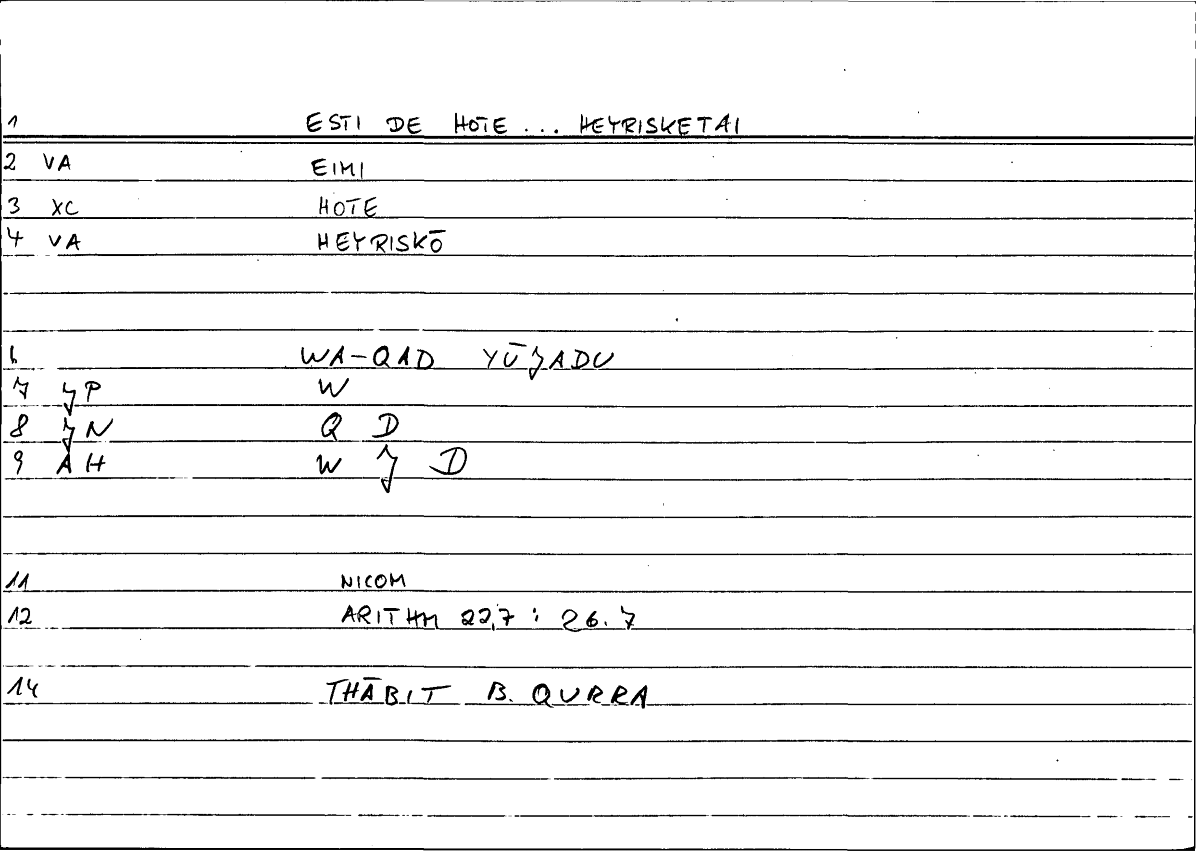 1 ESTI DE HOTE ... HEYRISKETAI
2 VA EIMI
3 XC HOTE
4 VA HEYRISKŌ
6 WA-QAD YŪJADU
7 JP W
8 JN Q D
9 AH W J D
11 NICOM
12 ARITHM 22,7 : 26.7
14 THĀBIT B. QURRA